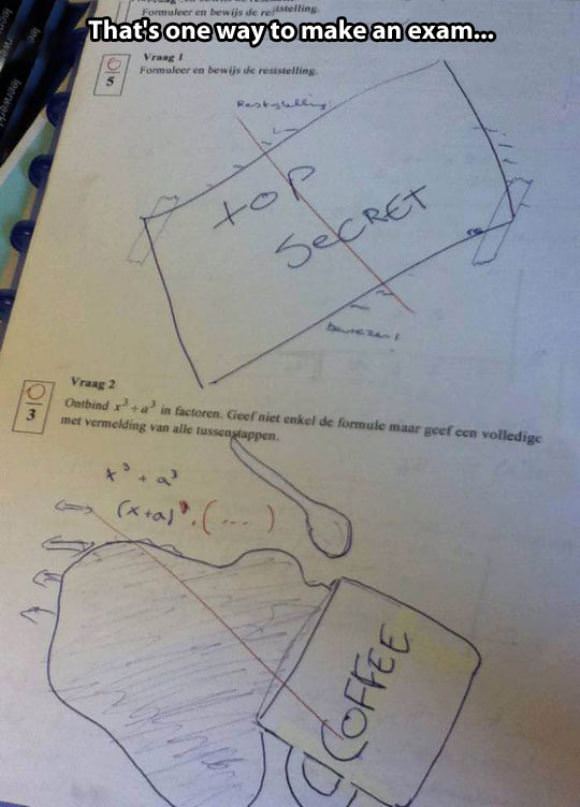 Formuleer en bewijs de reststelling.
That's one way to make an exam...
Vraag 1
0
5
Formuleer en bewijs de reststelling.
Reststelling
TOP
SECRET
Vraag 2
0
3
Ontbind x³+a³ in factoren. Geef niet enkel de formule maar geef een volledige
met vermelding van alle tussenstappen.
x³ + a³
(x+a)³.(...)
COFFEE